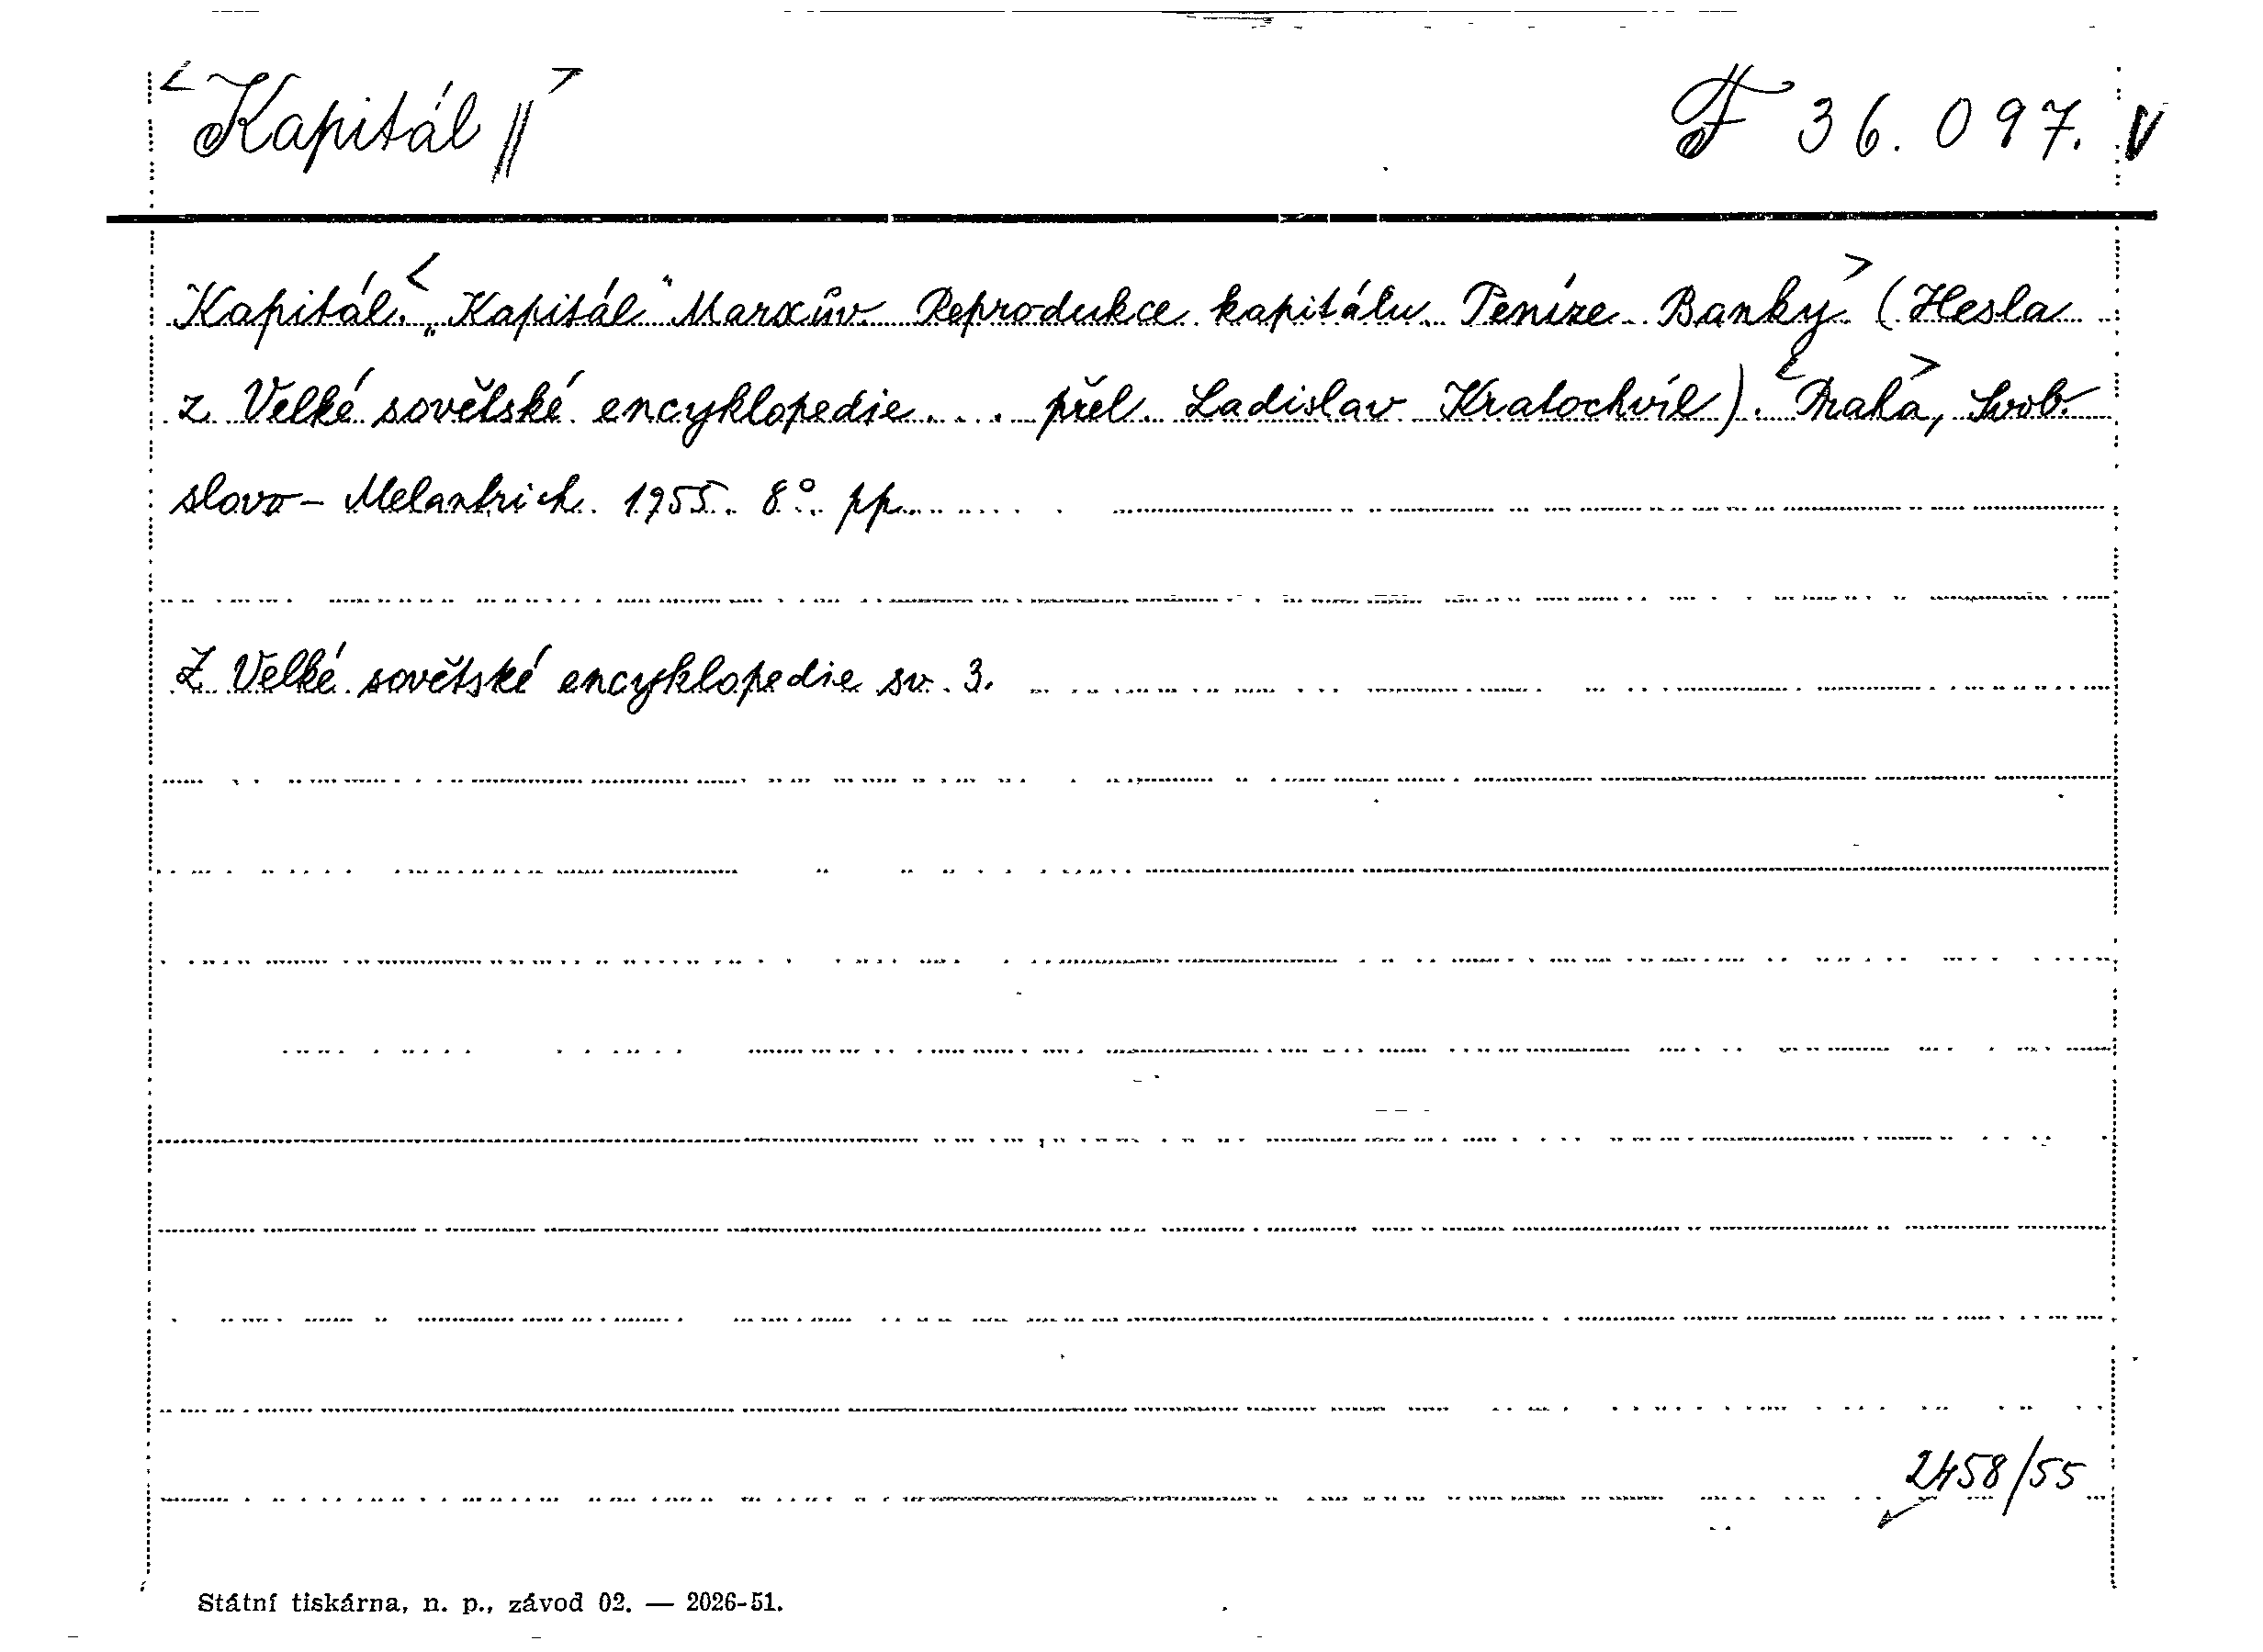 <Kapitál //> F 36.097. V
Kapitál. <„Kapitál" Marxův. Reprodukce kapitálu. Peníze. Banky> (Hesla
z Velké sovětské encyklopedie.... přel. Ladislav Kratochvíl). <Praha>, Svob.
slovo - Melantrich. 1955. 8°. pp.
Z Velké sovětské encyklopedie sv. 3.
2458/55
Státní tiskárna, n. p., závod 02. — 2026-51.